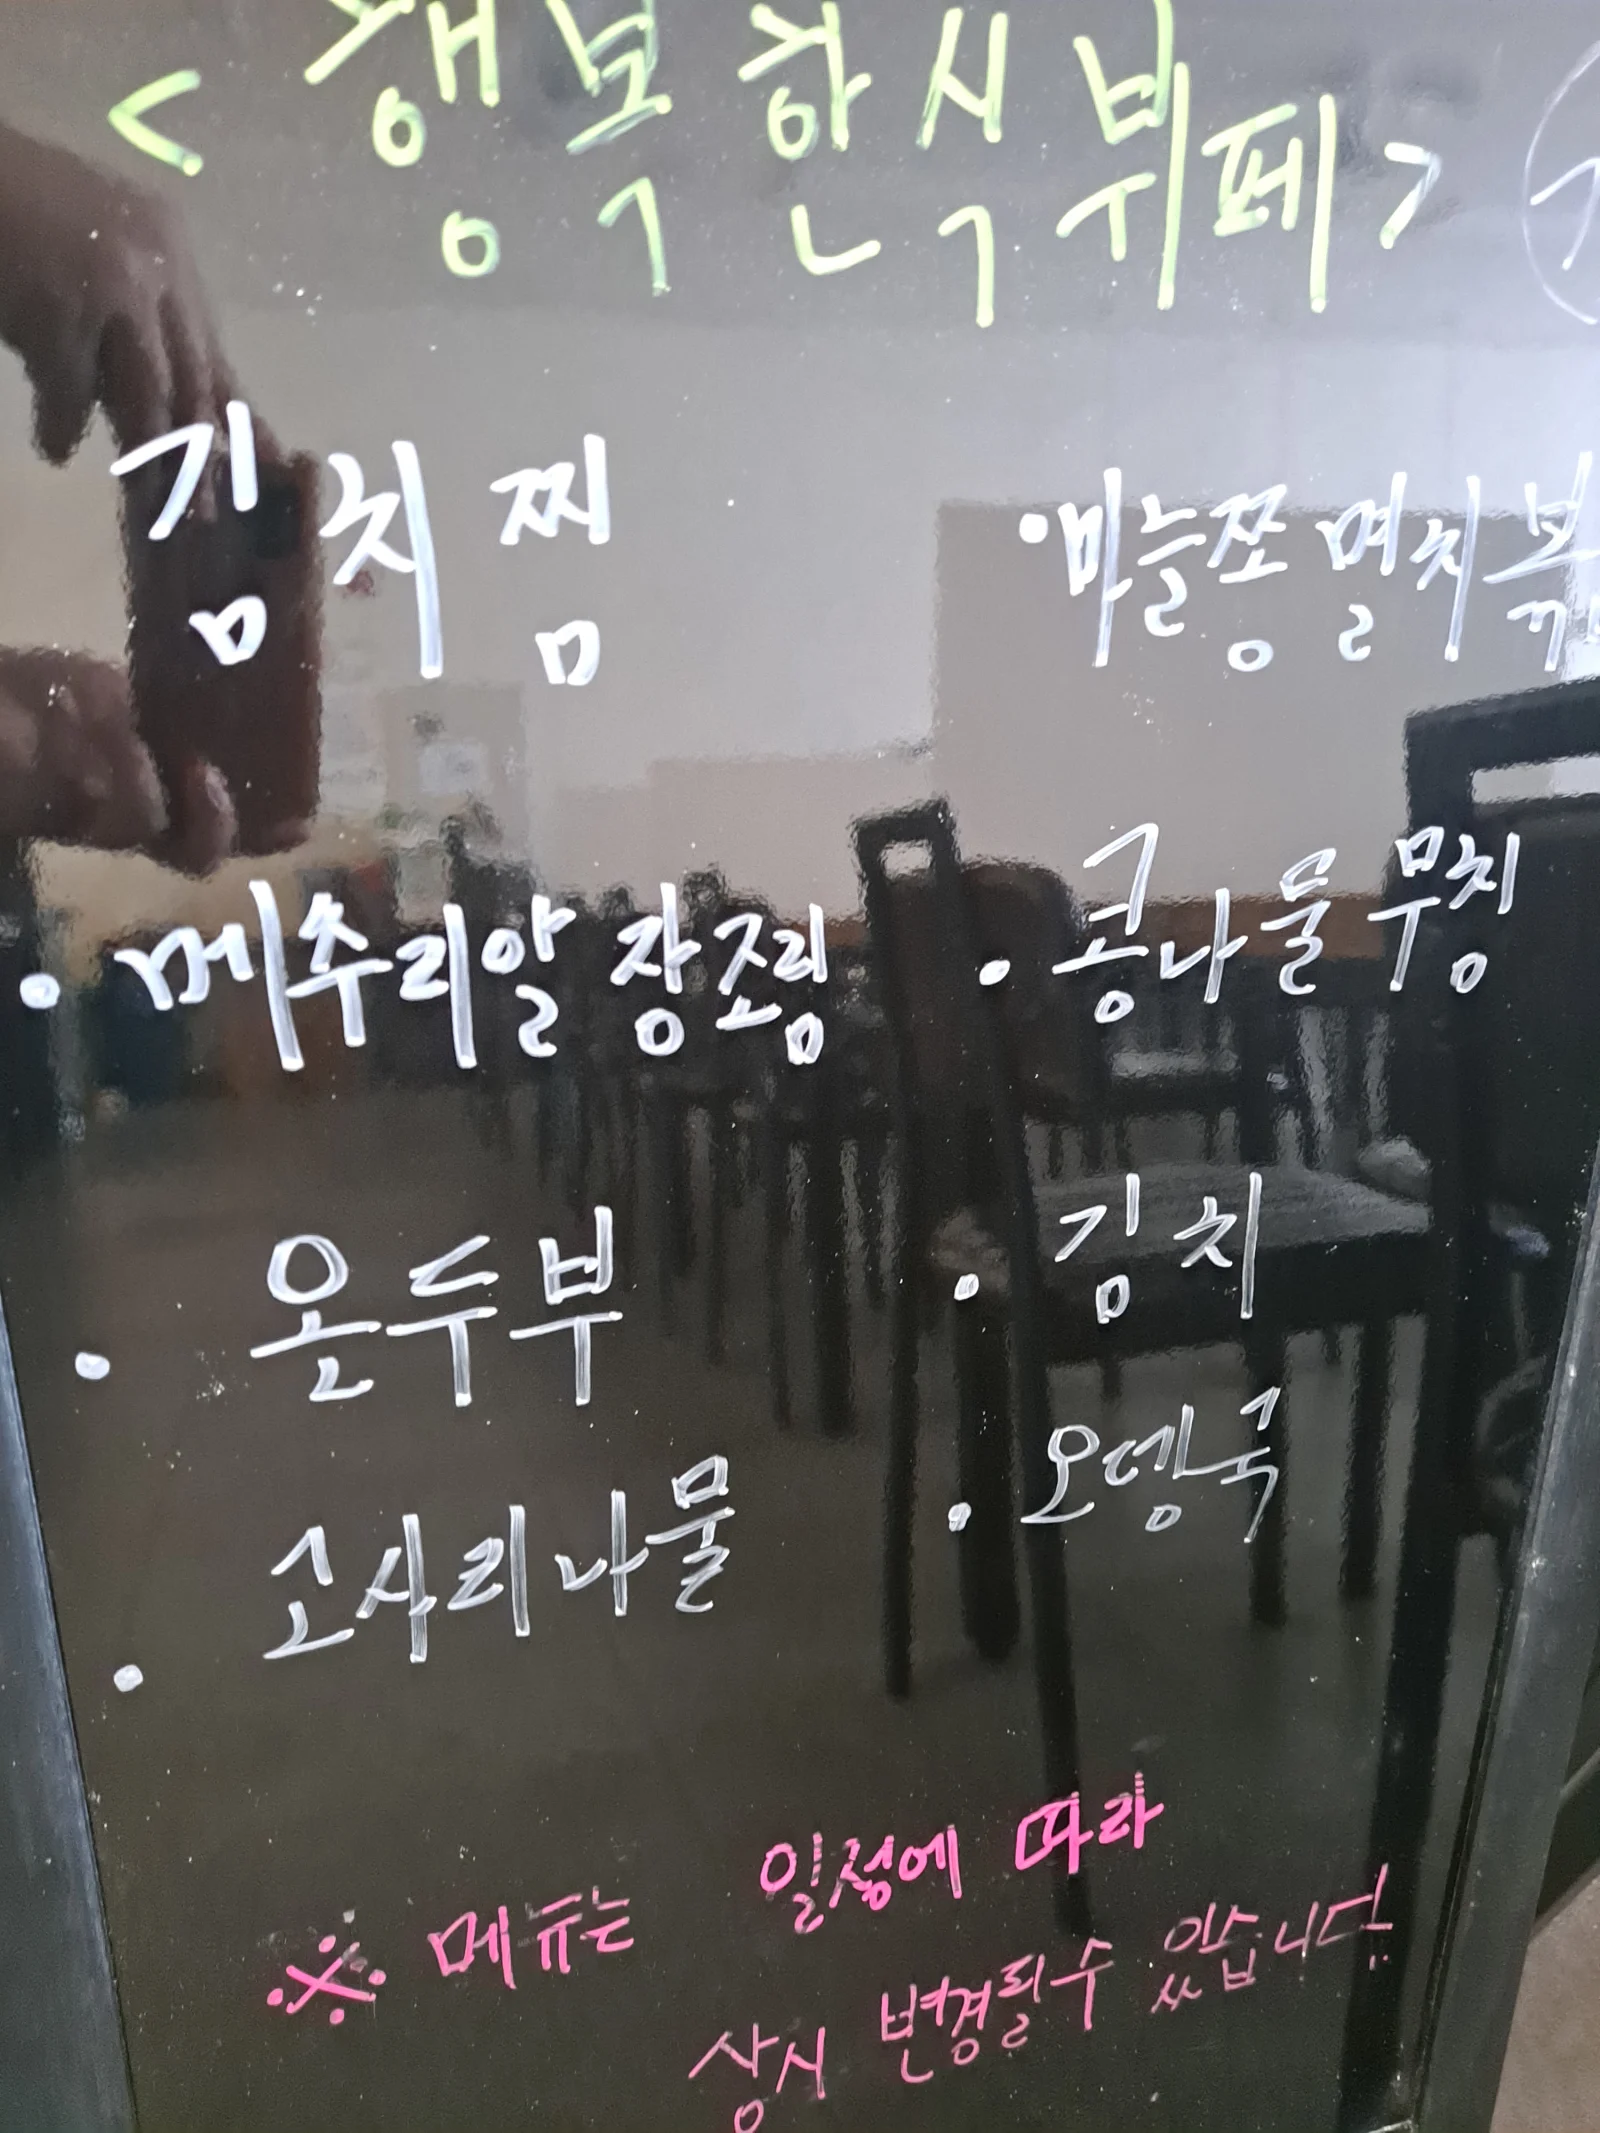 <행복한식뷔페>
김치찜
• 마늘쫑멸치볶
• 메추리알 장조림
• 콩나물무침
• 온두부
• 김치
• 고사리나물
• 오뎅국
※ 메뉴는 일정에 따라
상시 변경될수 있습니다.